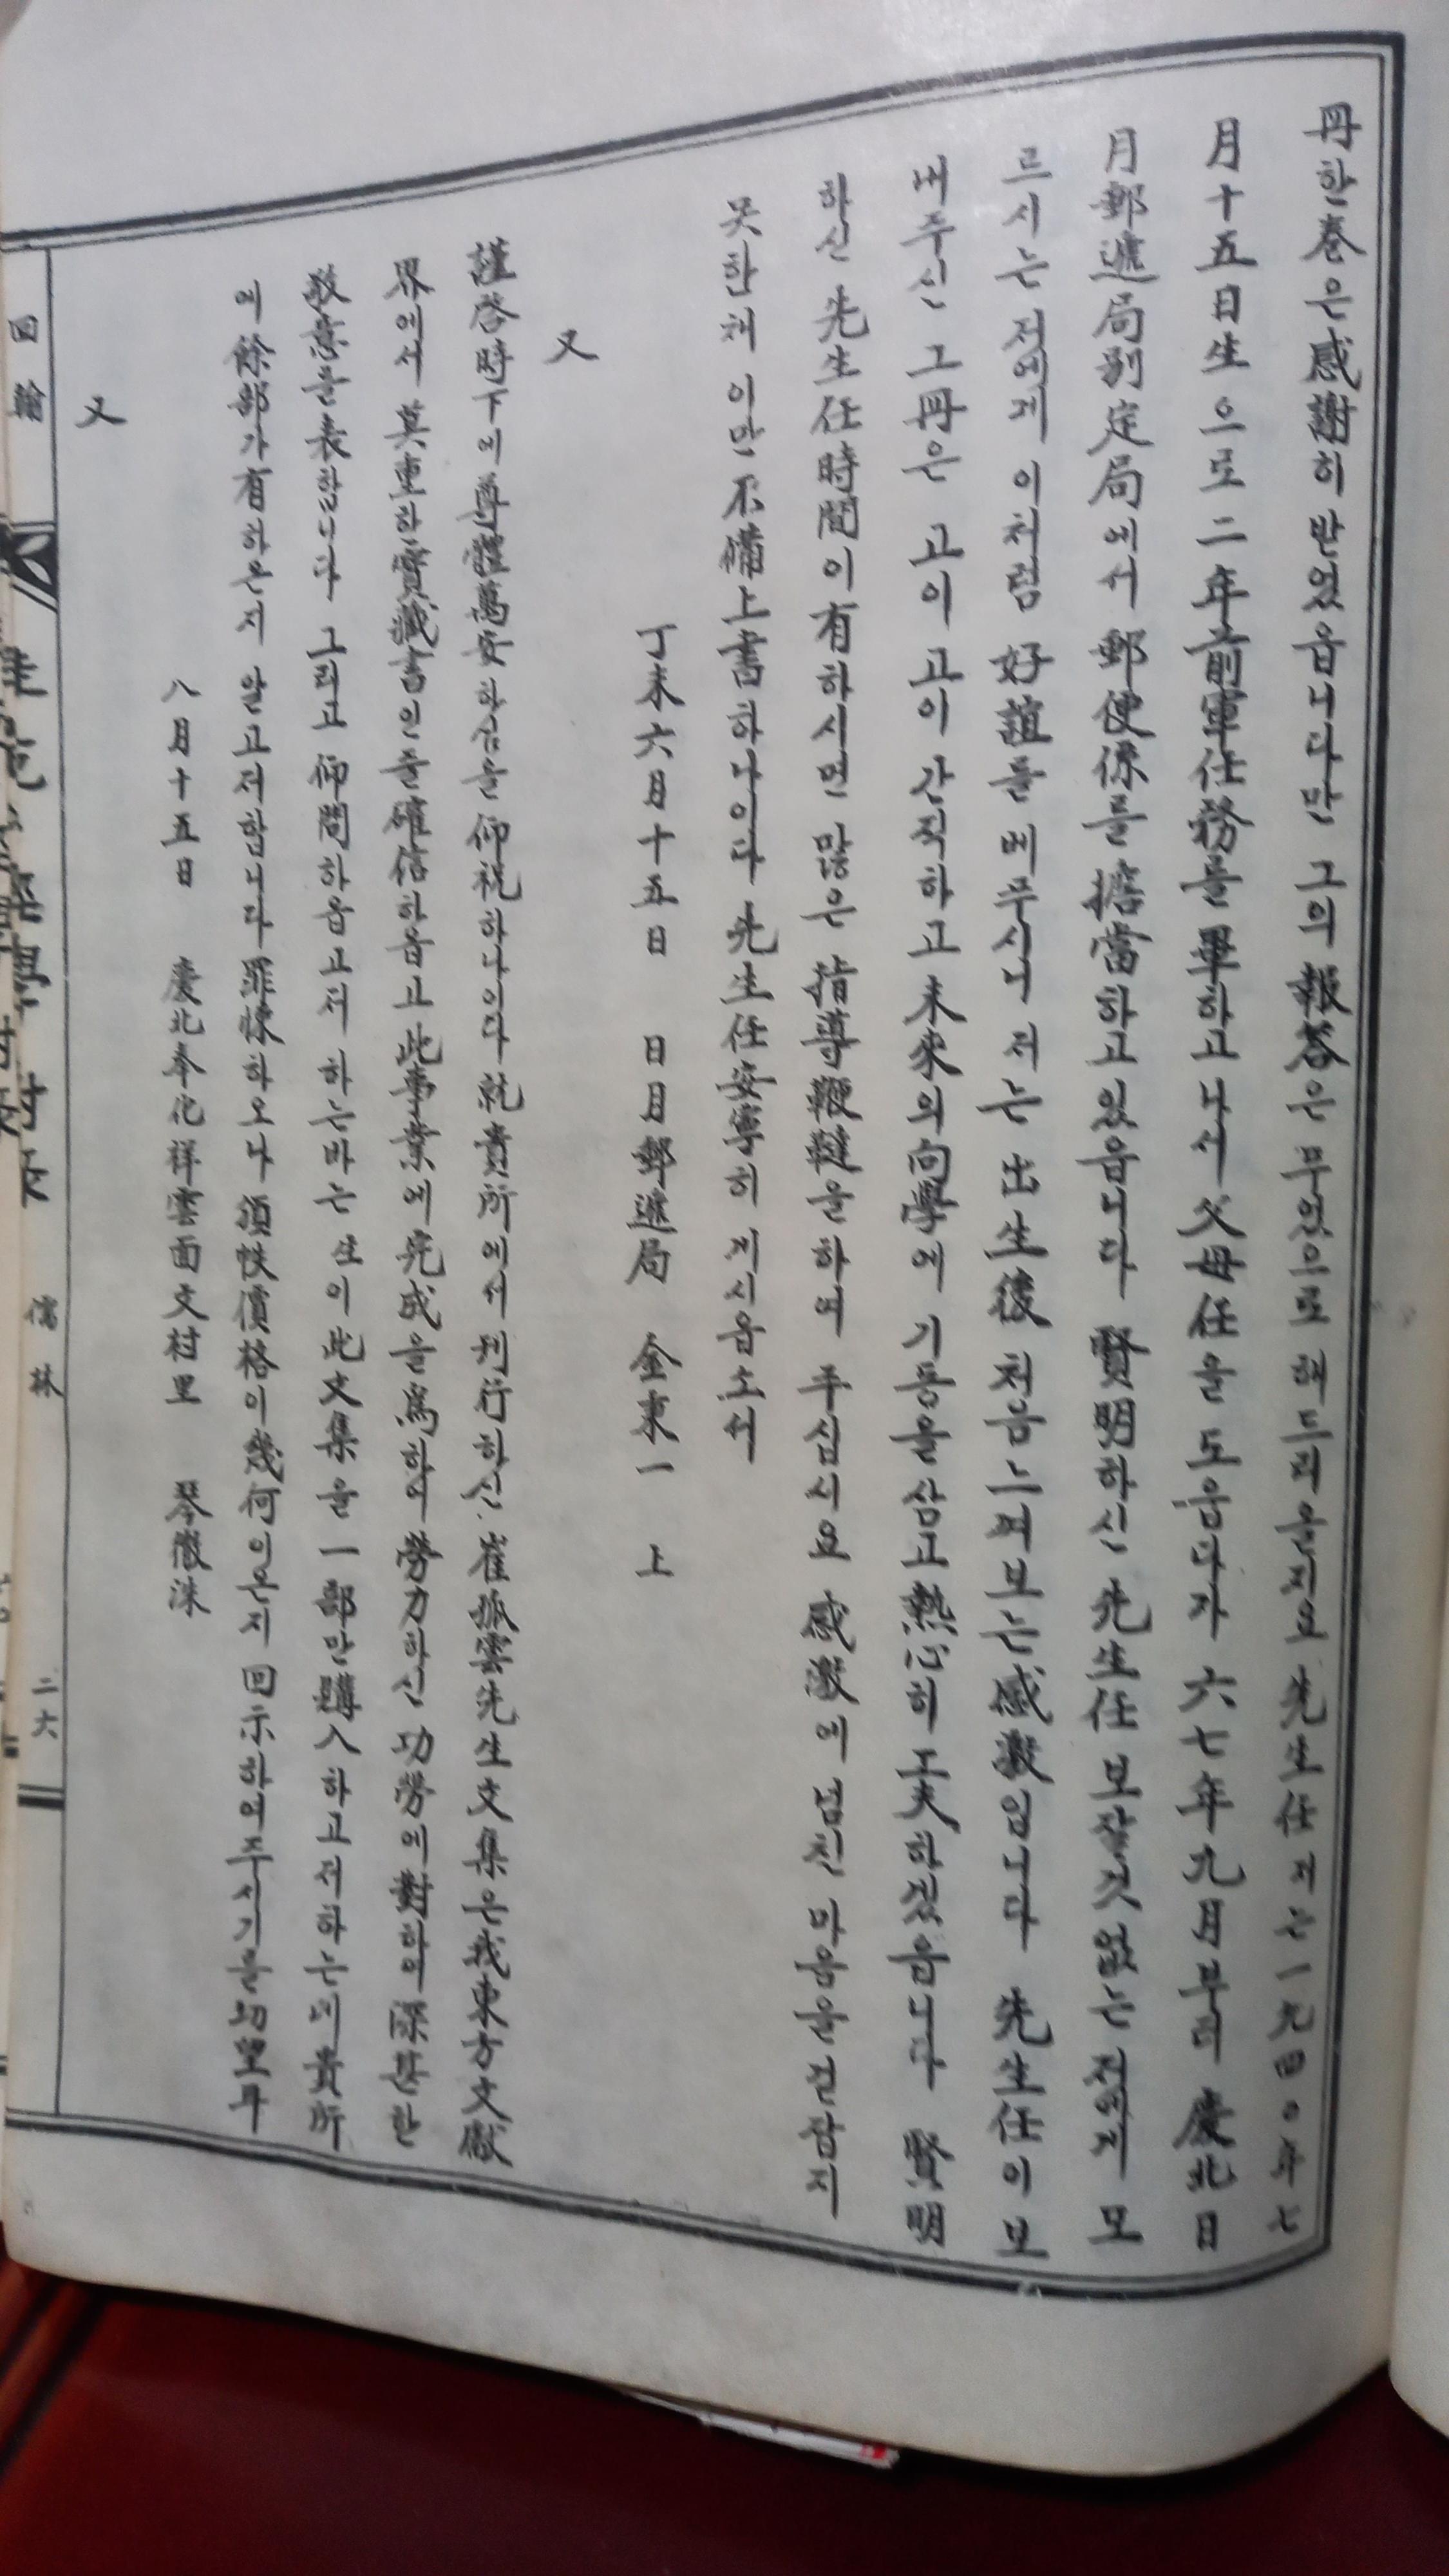 冊한卷은感謝히받었읍니다만 그의報答은무었으로해드리올지요 先生任저는一九四0年七
月十五日生으로二年前軍任務를畢하고나서父母任을도읍다가六七年九月부터慶北日
月郵遞局別定局에서郵便係를擔當하고있읍니다 賢明하신先生任보잘것없는저에게모
르시는저에게이처럼好誼를베푸시니저는出生後처음느껴보는感激입니다 先生任이보
내주신그冊은고이고이간직하고未來의向學에기둥을삼고熱心히工夫하겠읍니다 賢明
하신先生任時間이有하시면많은指導鞭韃을하여주십시요感激에넘친마음을걷잡지
못한채이만不備上書하나이다先生任安寧히게시옵소서
丁未六月十五日 日月郵遞局 金東一 上
又
謹啓時下에尊體萬安하심을仰祝하나이다就貴所에서刊行하신崔孤雲先生文集은我東方文獻
界에서莫重한寶藏書인줄確信하옵고此事業에完成을爲하여勞力하신功勞에對하여深甚한
敬意을表합니다그리고仰問하옵고저하는바는生이此文集을一部만購入하고저하는데貴所
에餘部가有하온지알고저합니다罪悚하오나須帙價格이幾何이온지回示하여주시기를切望耳
八月十五日 慶北奉化祥雲面文村里 琴徹洙
又
回翰
儒林
二六